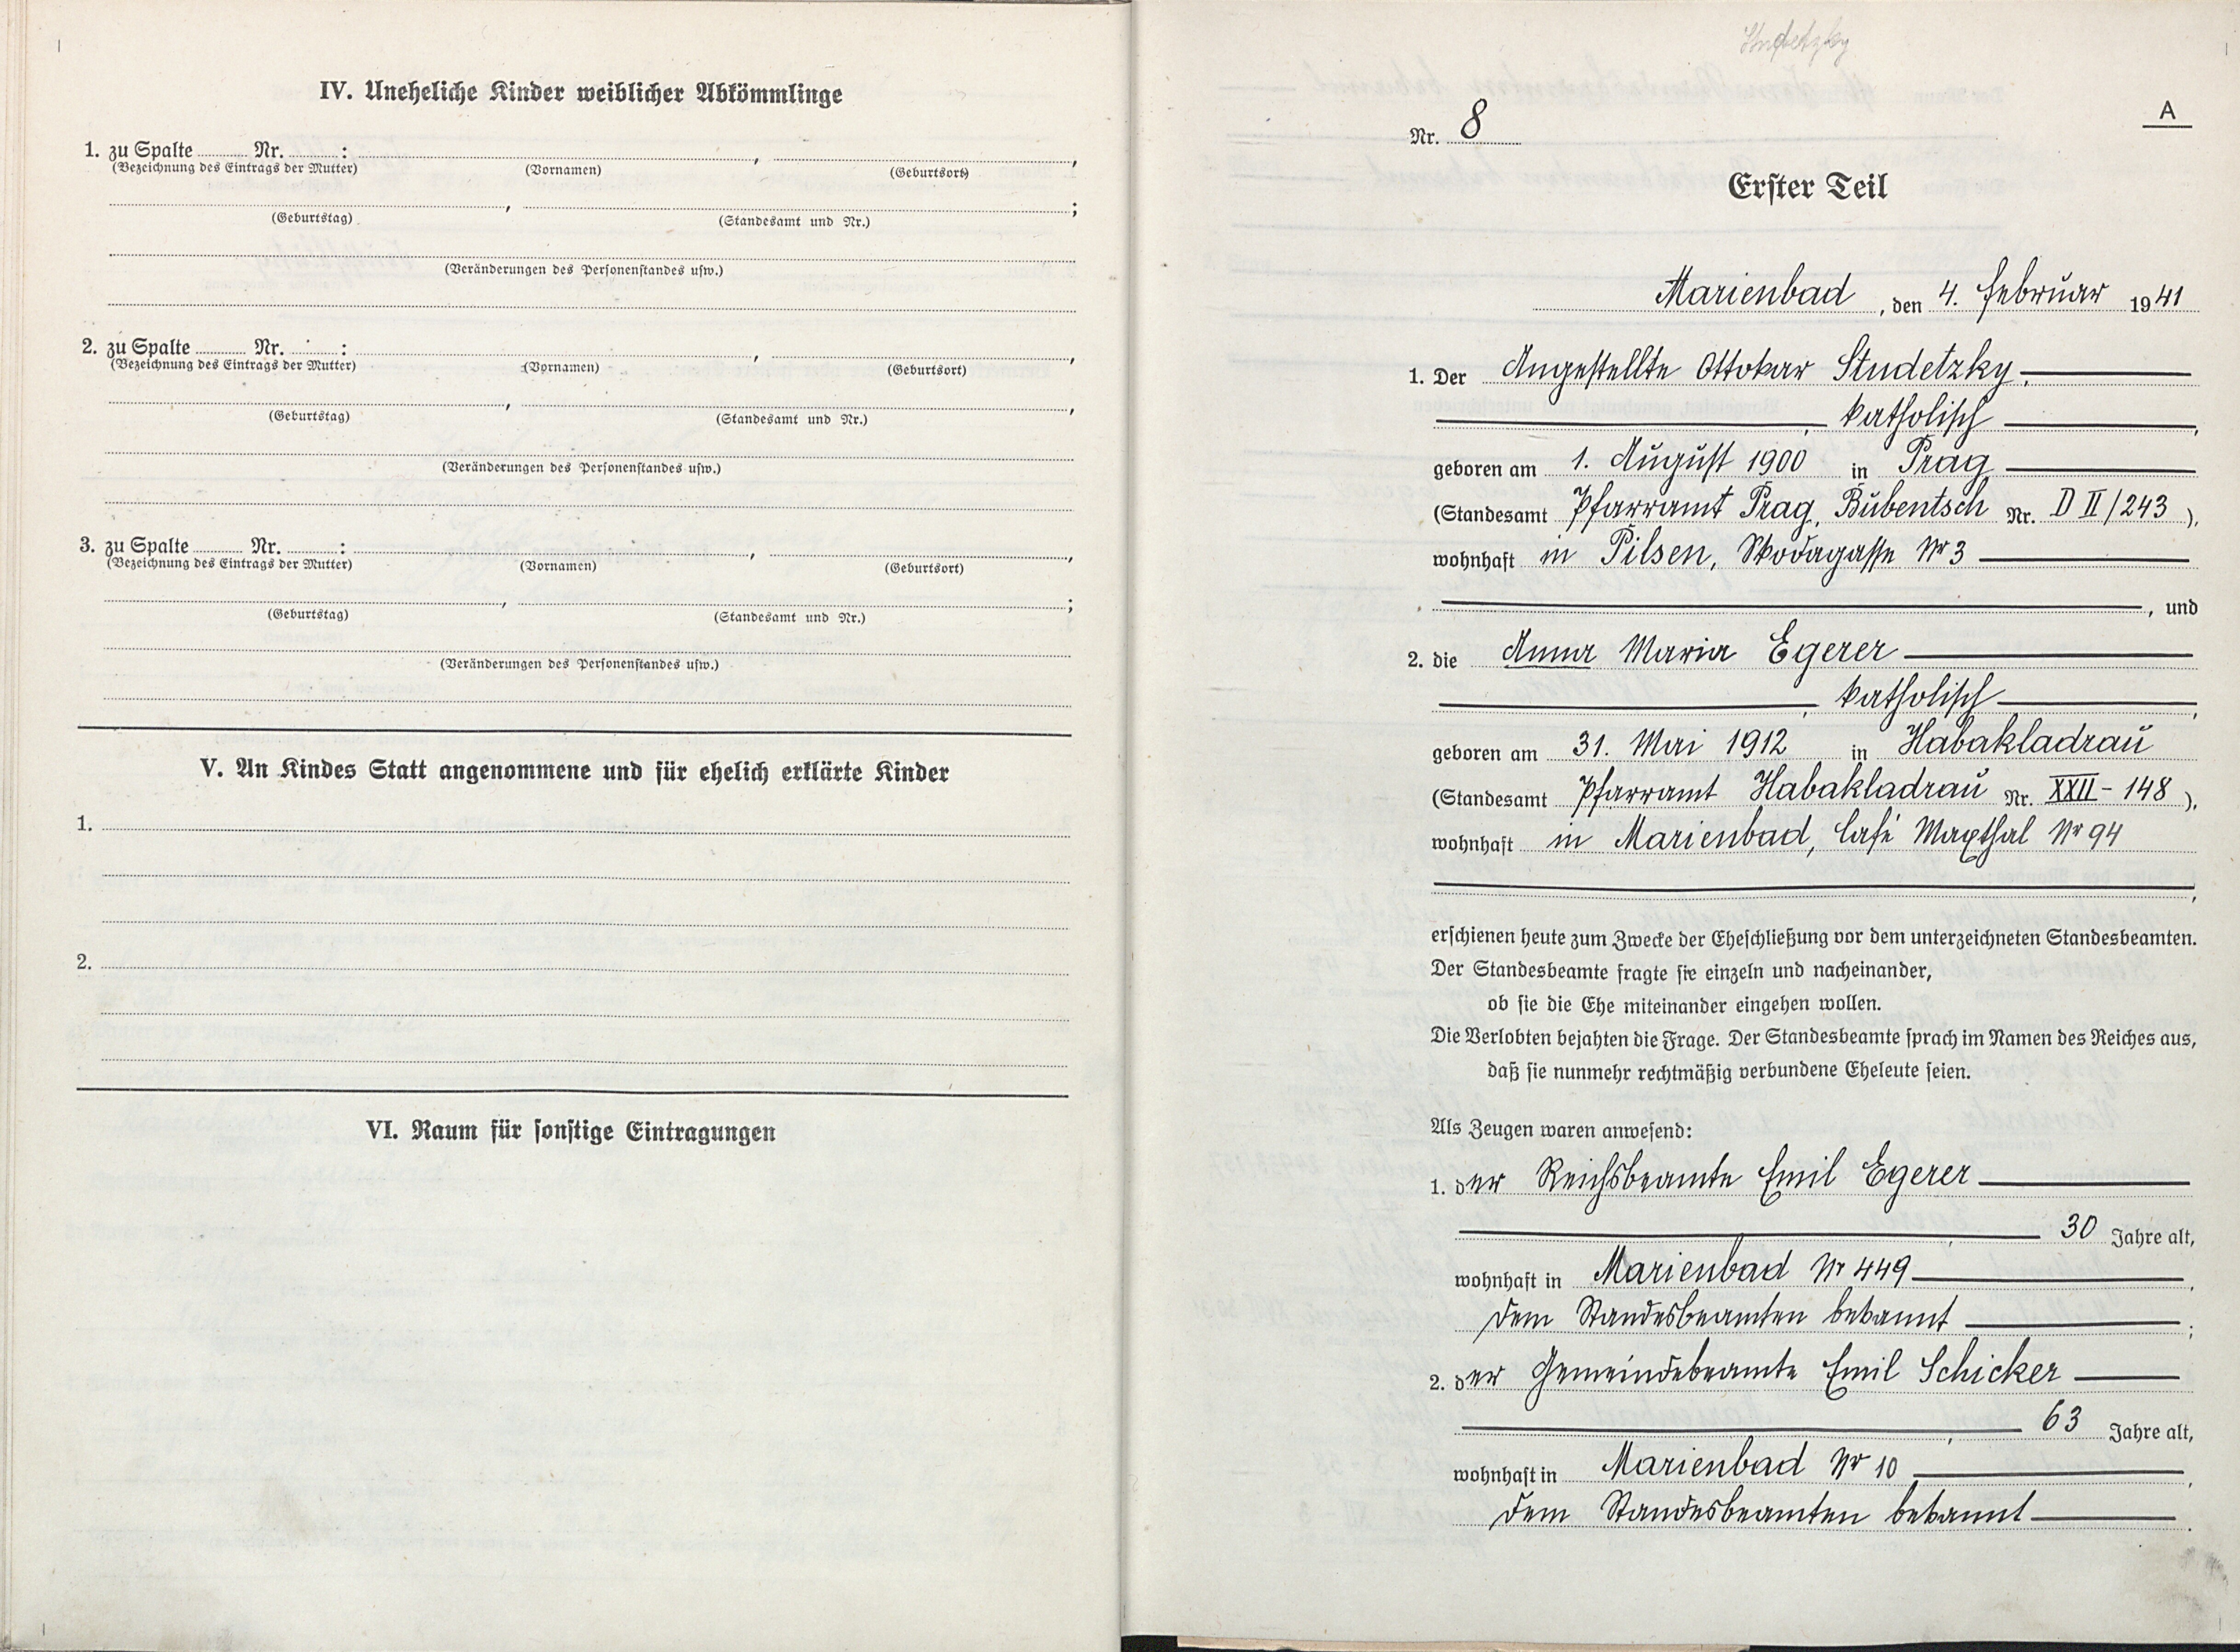 IV. Uneheliche Kinder weiblicher Abkömmlinge
1. zu Spalte ........ Nr. ........ : ........, ........,
(Bezeichnung des Eintrags der Mutter) (Vornamen) (Geburtsort)
........, ........;
(Geburtstag) (Standesamt und Nr.)
(Veränderungen des Personenstandes usw.)
2. zu Spalte ........ Nr. ........ : ........, ........,
(Bezeichnung des Eintrags der Mutter) (Vornamen) (Geburtsort)
........, ........,
(Geburtstag) (Standesamt und Nr.)
(Veränderungen des Personenstandes usw.)
3. zu Spalte ........ Nr. ........ : ........, ........,
(Bezeichnung des Eintrags der Mutter) (Vornamen) (Geburtsort)
........, ........;
(Geburtstag) (Standesamt und Nr.)
(Veränderungen des Personenstandes usw.)
V. An Kindes Statt angenommene und für ehelich erklärte Kinder
1.
2.
VI. Raum für sonstige Eintragungen
Studetzky
Nr. 8
A
Erster Teil
Marienbad, den 4. Februar 1941
1. Der Angestellte Ottokar Studetzky,
, katholisch,
geboren am 1. August 1900 in Prag
(Standesamt Pfarramt Prag, Bubentsch Nr. D II/243),
wohnhaft in Pilsen, Skodagasse Nr 3
, und
2. die Anna Maria Egerer
, katholisch,
geboren am 31. Mai 1912 in Habakladrau
(Standesamt Pfarramt Habakladrau Nr. XXII-148),
wohnhaft in Marienbad, Café Maxthal Nr 94
,
erschienen heute zum Zwecke der Eheschließung vor dem unterzeichneten Standesbeamten.
Der Standesbeamte fragte sie einzeln und nacheinander,
ob sie die Ehe miteinander eingehen wollen.
Die Verlobten bejahten die Frage. Der Standesbeamte sprach im Namen des Reiches aus,
daß sie nunmehr rechtmäßig verbundene Eheleute seien.
Als Zeugen waren anwesend:
1. der Reichsbeamte Emil Egerer
, 30 Jahre alt,
wohnhaft in Marienbad Nr 449,
dem Standesbeamten bekannt;
2. der Gemeindebeamte Emil Schicker
, 63 Jahre alt,
wohnhaft in Marienbad Nr 10,
dem Standesbeamten bekannt.